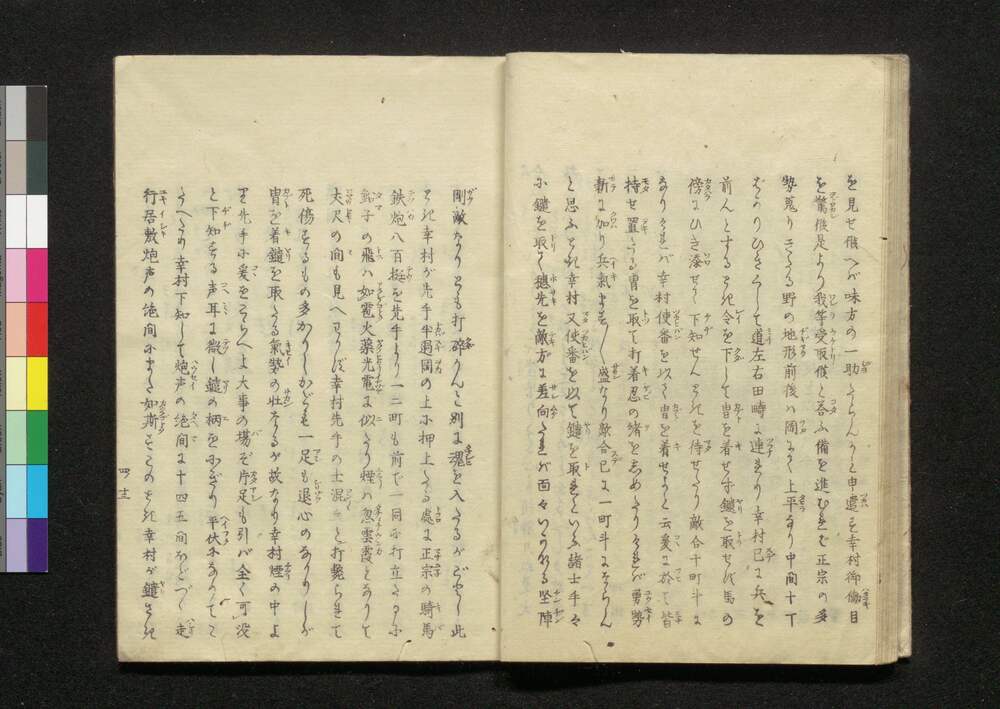 を見せ候へバ味方の一助たらんかと申遣を幸村御傷目
を驚候是より我等受取候と答ふ備を進むれば正宗の多
勢蒐りきたる野の地形前後ハ岡にて上平なり中間十丁
ばかりひきくして道左右田畤に連れり幸村已に兵を
前んとするとき令を下して冑を着せず鑓を取せず馬の
傍にひき添せて下知せんときを待せたり敵合十町斗に
なりけれバ幸村使番を以て冑を着せよと云爰に於て皆
持せ置たる冑を取て打着忍の緒をしめたりけれバ勇勢
新に加り兵氣ますます盛なり敵合已に一町斗にならん
と思ふとき幸村又使番を以て鑓を取れといふ諸士手々
に鑓を取て穂先を敵方に差向たれバ面々いかなる堅陣
剛敵なりとも打砕らんと別に魂を入たるがごとし此
とき幸村が先手半過岡の上に押上たる處に正宗の騎馬
鉄炮八百挺を先手より一二町も前で一同に打立たるに
鉛子の飛ハ如雹火薬光電に似たり煙ハ忽雲霞となりて
大尺の間も見へわかず幸村先手の士混々と打斃らされて
死傷するもの多かりしかども一足も退心のなかりしが
冑を着鑓を取たる氣勢の壮なるが故なり幸村煙の中よ
り先手に爰をこらへよ大事の場ぞ片足も引バ全く可没
と下知する声耳に徹し鑓の柄をにぎり平伏になりてこ
らへたり幸村下知して炮声の絶間に十四五間ほどづゝ走
行居敷炮声の絶間にまた如斯するこのとき幸村が鑓さき
四ノ十三